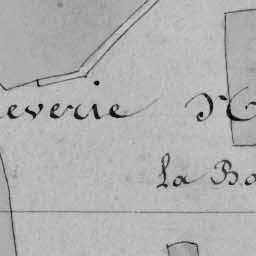 everie d'
La Ba